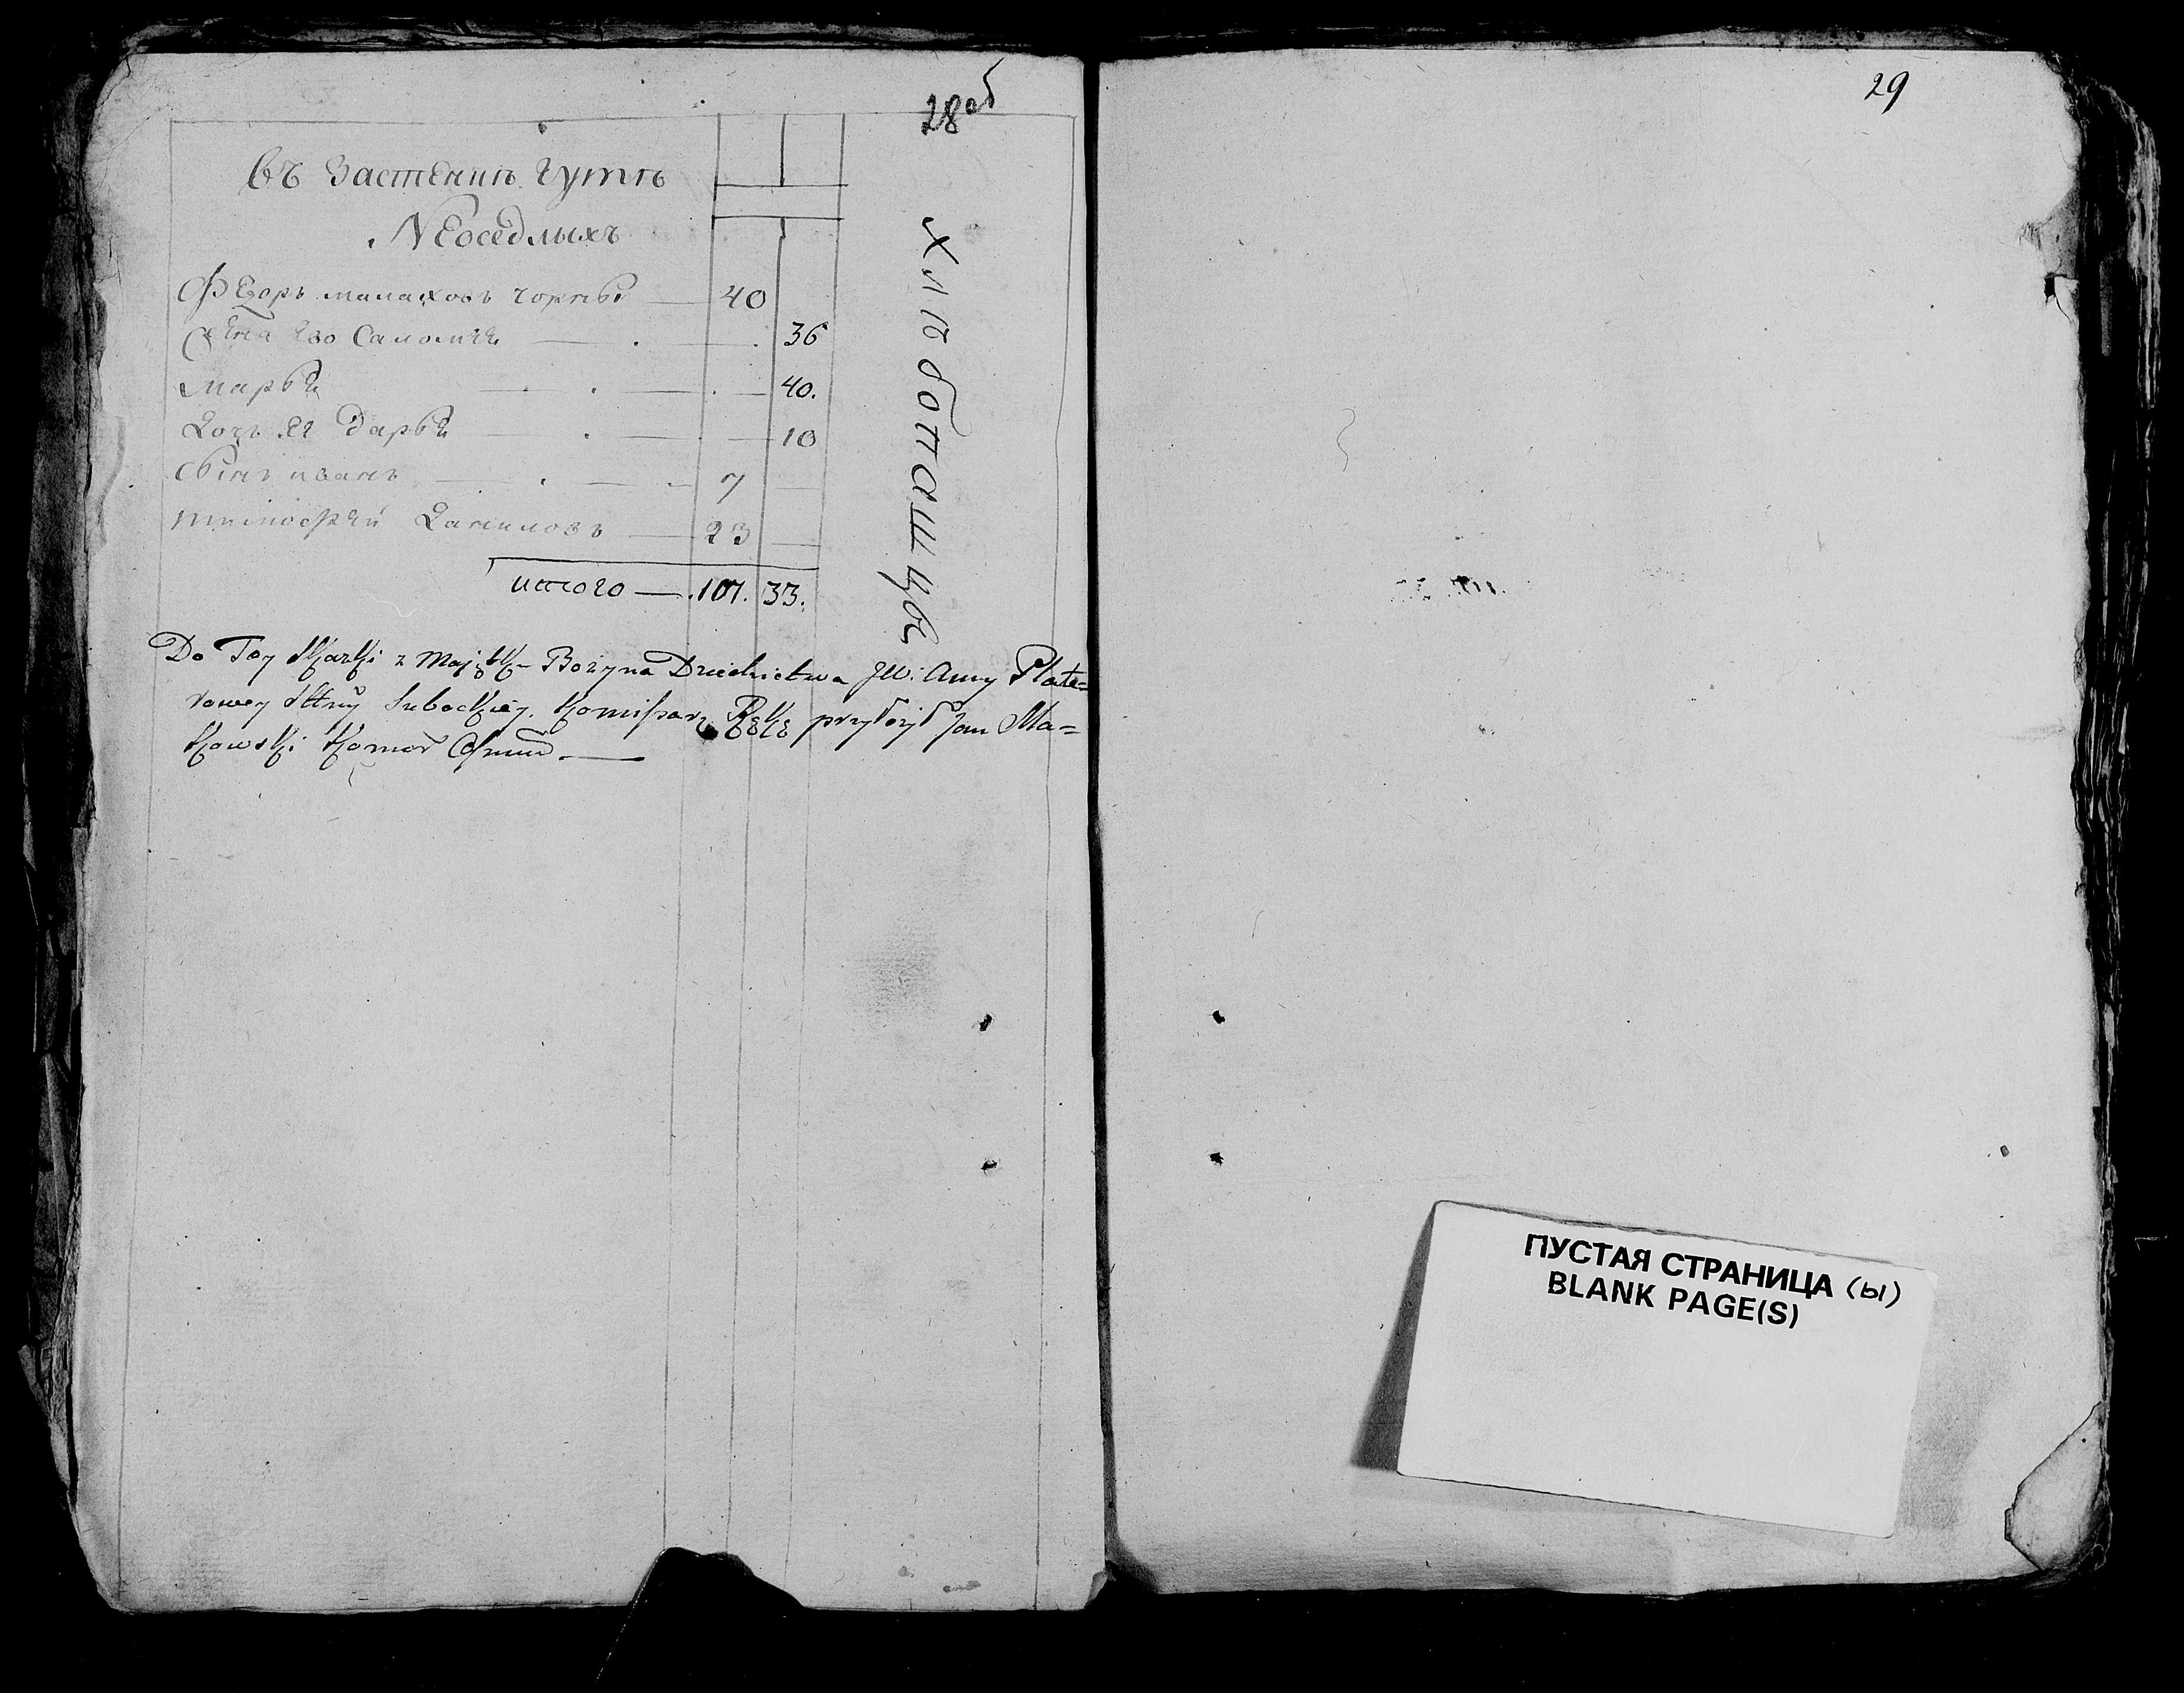 28об
въ Застенкѣ гутѣ
Неоседлыхъ
Федоръ малаховъ чорны — 40
Жена Его Саломея — 36
марья — 40.
Дочь Ея Дарья — 10
Сынъ иванъ — 7
тимофей Даниловъ — 23
итого — 107. 33.
Хлѣбопашцовъ
Do Tey Skazki z Majątk Bożyna Dziedzictwa JW: Anny Plate=
rowey Sttny Subockiey. Komisarz Rękę przyłożył Jan Ma=
kowski Komor
29
ПУСТАЯ СТРАНИЦА (ы)
BLANK PAGE(S)